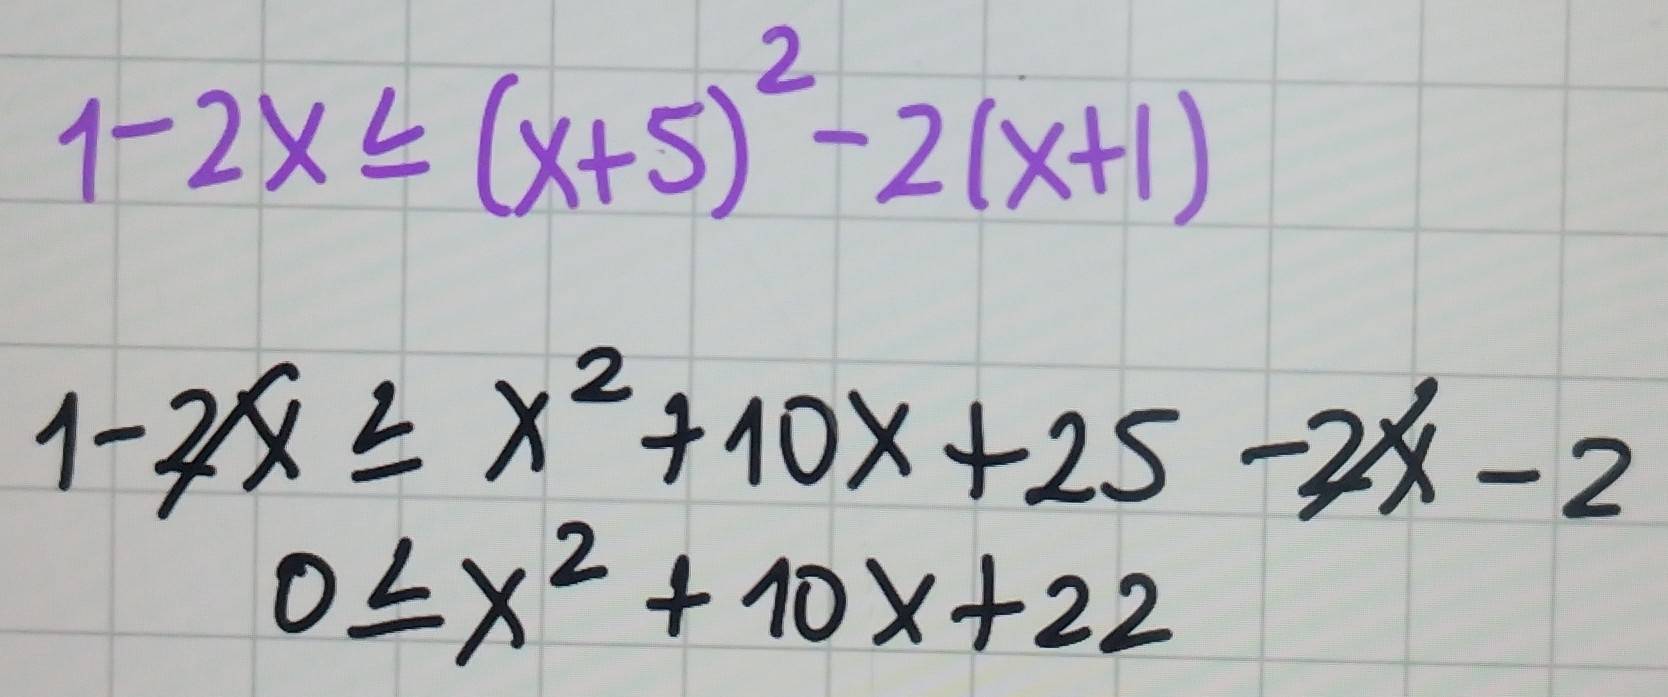 1-2x ≤ (x+5)² - 2(x+1)
1-2x ≤ x² + 10x + 25 - 2x - 2
0 ≤ x² + 10x + 22